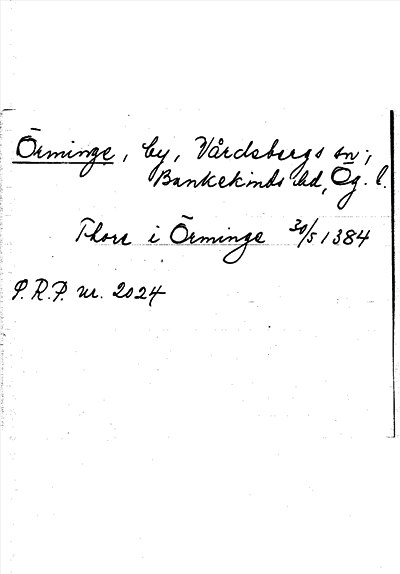 Örminge, by, Vårdsbergs sn;
Bankekinds hd, Ög. l.
Thore i Örminge 30/5 1384
P.R.P. nr. 2024